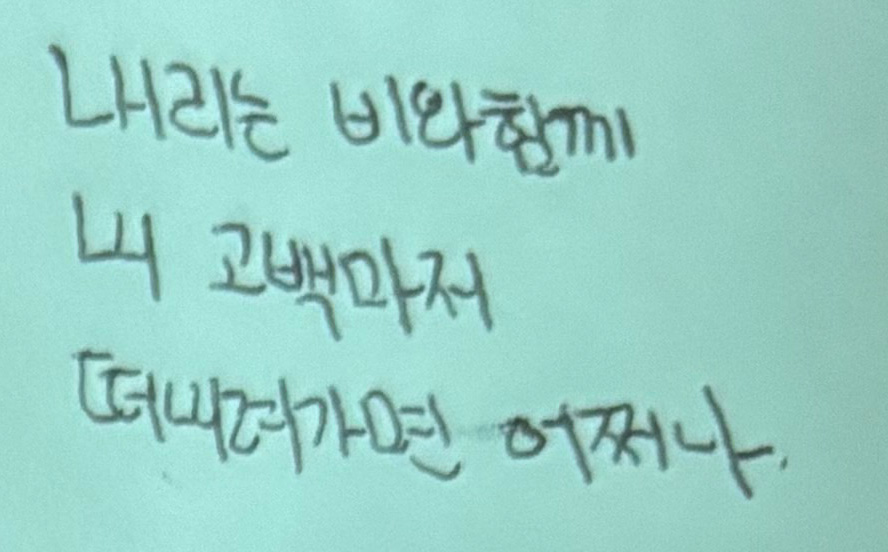 내리는 비와함께
내 고백마저
떠내려가면 어쩌나.